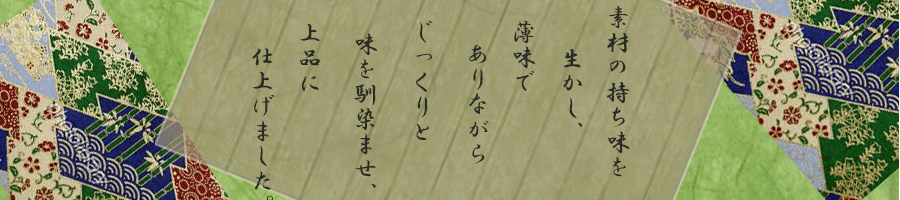 素材の持ち味を
生かし、
薄味で
ありながら
じっくりと
味を馴染ませ、
上品に
仕上げました。